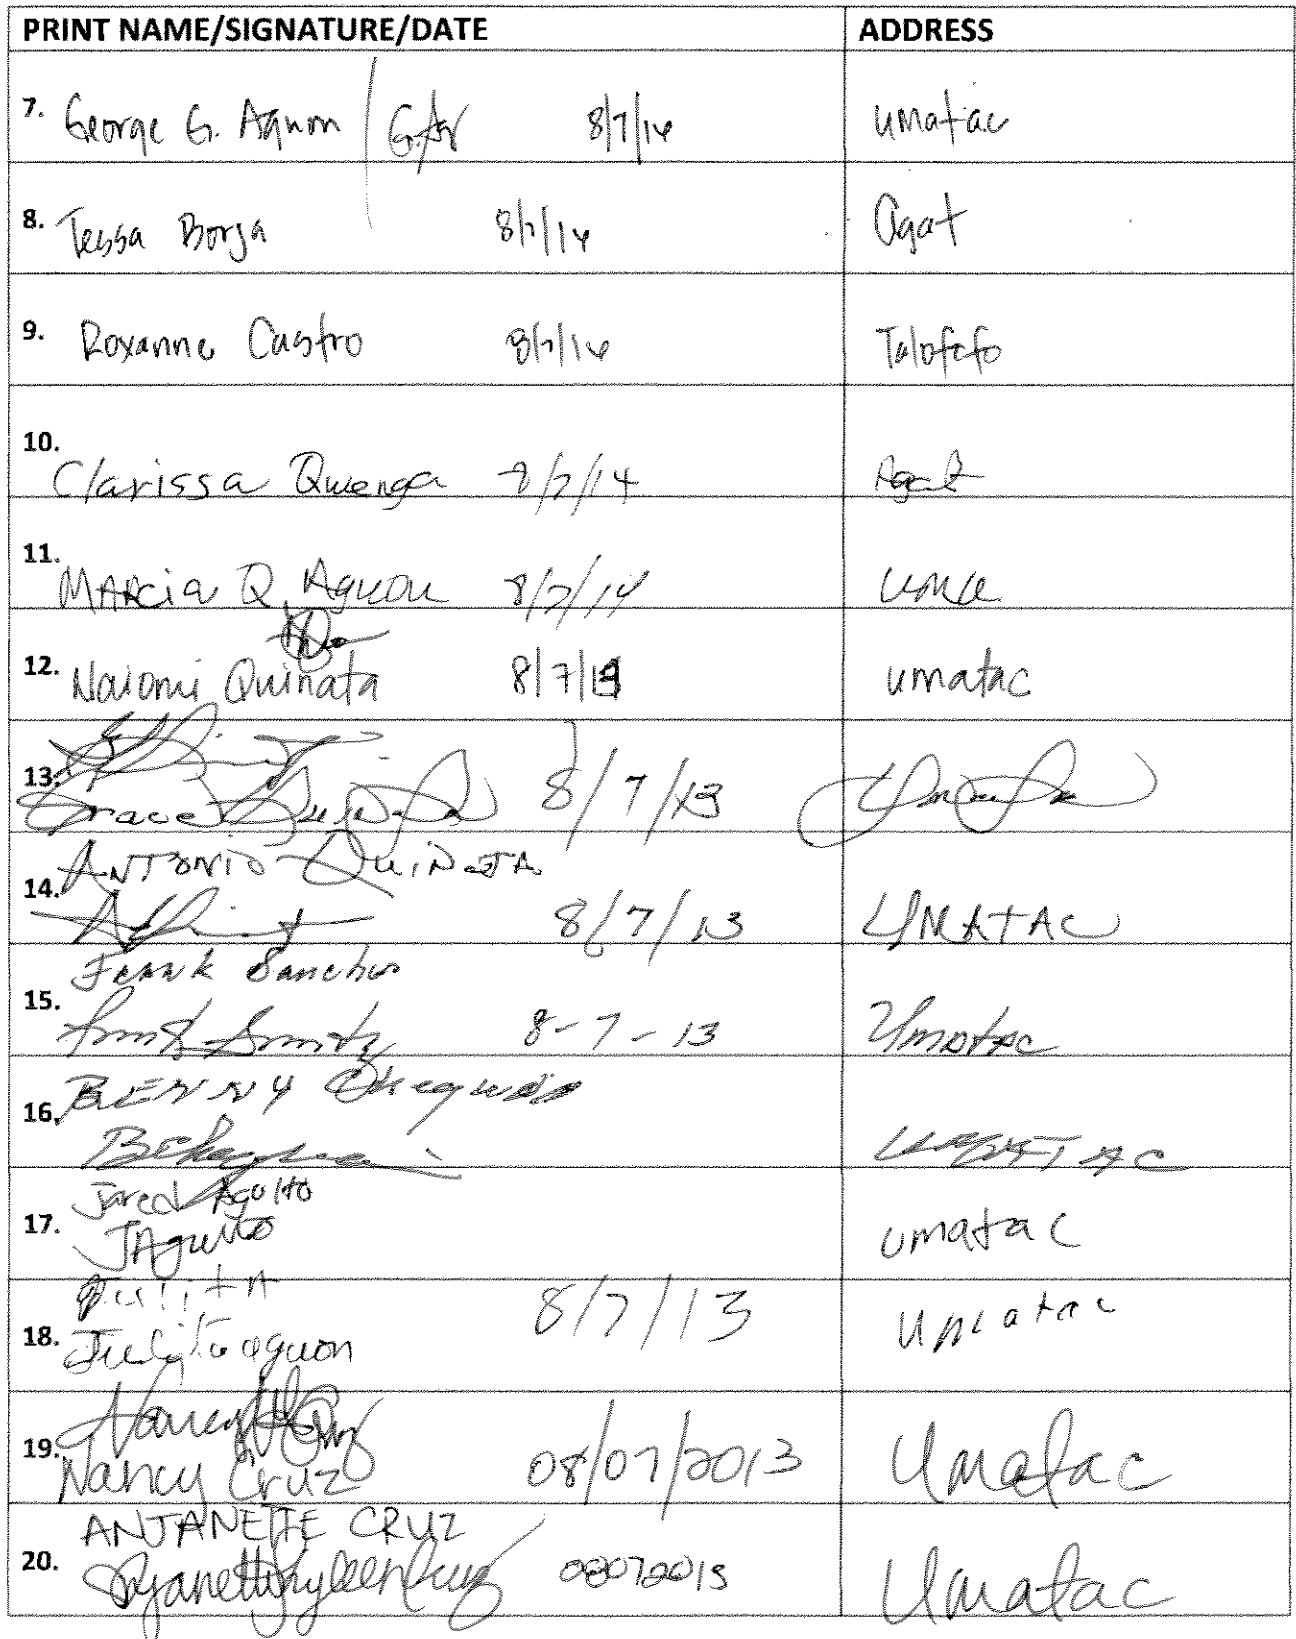 PRINT NAME/SIGNATURE/DATE ADDRESS
7. George G. Aguon 8/7/14 Umatac
8. Tessa Borja 8/7/14 Agat
9. Roxanne Castro 8/7/14 Talofofo
10. Clarissa Quenga 8/7/14 Agat
11. Marcia Q. Aguon 8/7/14
12. Naiomi Quinata 8/7/13 umatac
13. Grace Quinata 8/7/13
ANTONIO QUINATA
14. 8/7/13 UMATAC
Frank Sanchez
15. 8-7-13 Umatac
BENNY
16. UMATAC
Jared Agulto
17. JAgulto umatac
Julita
18. Julita aguon 8/7/13 Umatac
19. Nancy Cruz 08/07/2013 Umatac
ANJANETTE CRUZ
20. Umatac